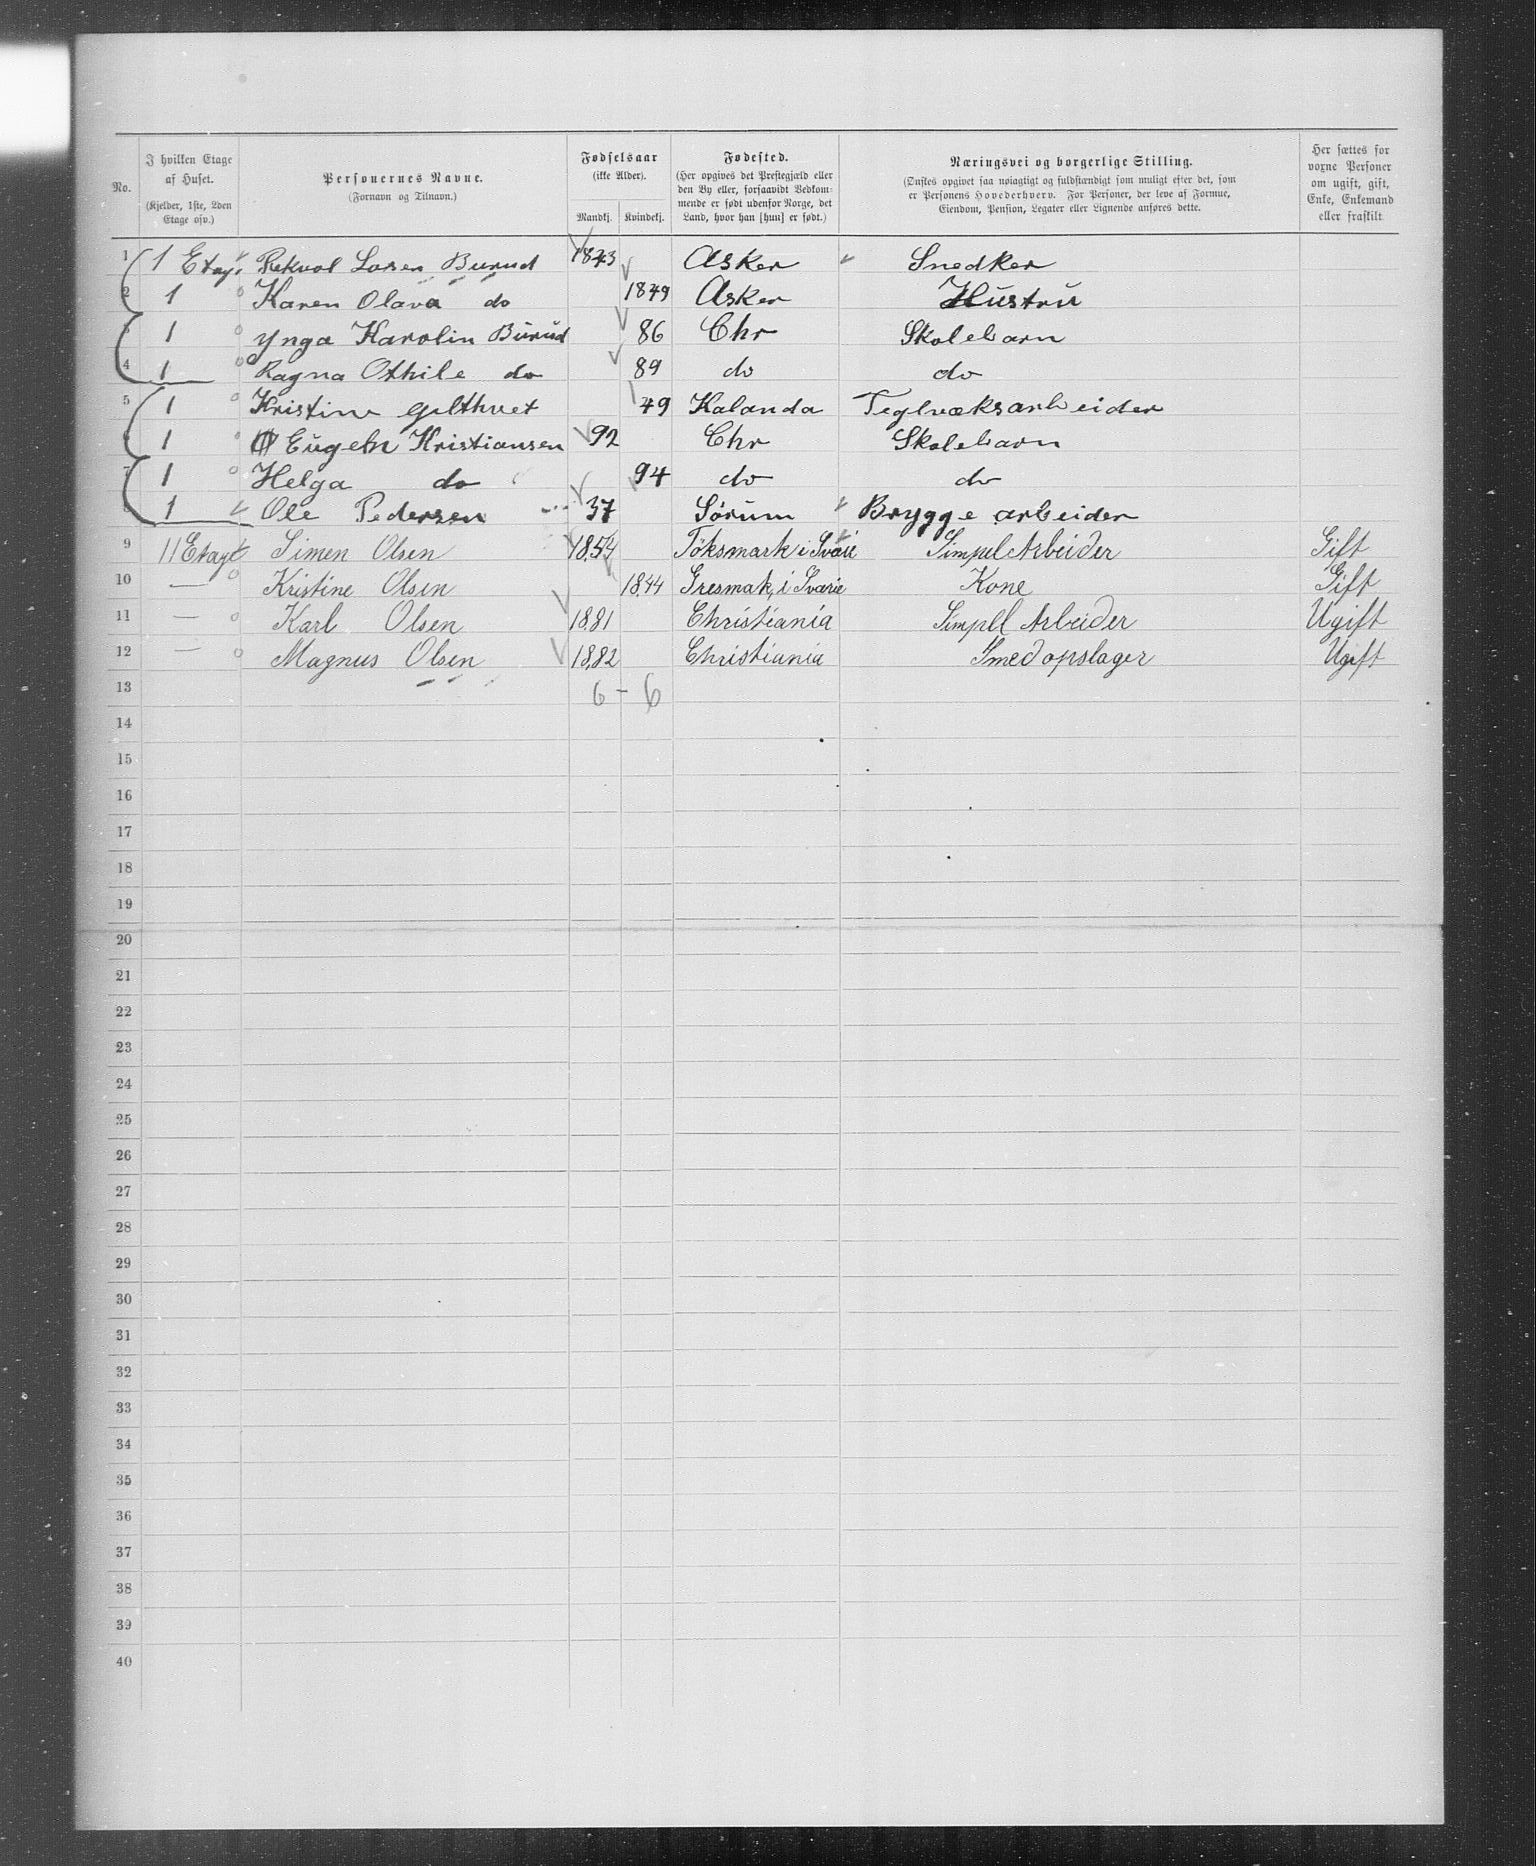 No.
I hvilken Etage af Huset.
(Kjelder, 1ste, 2den Etage osv.)
Personernes Navne.
(Fornavn og Tilnavn.)
Fødselsaar
(ikke Alder).
Mandkj. Kvindekj.
Fødested.
(Her opgives det Præstegjæld eller
den By eller, forsaavidt Vedkom-
mende er født udenfor Norge, det
Land, hvor han [hun] er født.)
Næringsvei og borgerlige Stilling.
(Ønskes opgivet saa nøiagtigt og fuldstændigt som muligt efter det, som
er Personens Hovederhverv. For Personer, der leve af Formue,
Eiendom, Pension, Legater eller Lignende anføres dette.
Her sættes for
voxne Personer
om ugift, gift,
Enke, Enkemand
eller fraskilt
1 1 Etage Burud 1843 Asker Snedker
2 1 Karen Olava do 1849 Asker Hustru
3 1 Ynga Karolin Burud 86 Chr Skolebarn
4 1 Ragna Othile do 89 do do
5 1 Kristine 49 Kalanda Teglvæksarbeider
6 1 Kristiansen 92 Chr Skolebarn
7 1 Helga do 94 do do
1 Ole Pedersen 37 Sørum Brygge arbeider
9 11 Etage Simen Olsen 1854 Töksmark i Svärie Simpel Arbeider Gift
10 — Kristine Olsen 1844 Gresmak, i Svärie Kone Gift
11 — Karl Olsen 1881 Christiania Simpel Arbeider Ugift
12 — Magnus Olsen 1882 Christiania Smed opslager Ugift
13 6 - 6
14
15
16
17
18
19
20
21
22
23
24
25
26
27
28
29
30
31
32
33
34
35
36
37
38
39
40